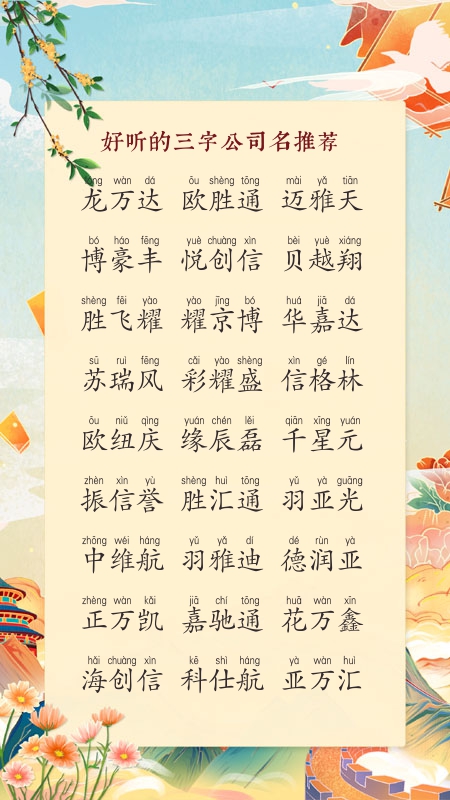 好听的三字公司名推荐
lóng wàn dá ōu shèng tōng mài yǎ tiān
龙万达 欧胜通 迈雅天
bó háo fēng yuè chuàng xìn bèi yuè xiáng
博豪丰 悦创信 贝越翔
shèng fēi yào yào jīng bó huá jiā dá
胜飞耀 耀京博 华嘉达
sū ruì fēng cǎi yào shèng xìn gé lín
苏瑞风 彩耀盛 信格林
ōu niǔ qìng yuán chén lěi qiān xīng yuán
欧纽庆 缘辰磊 千星元
zhèn xìn yù shèng huì tōng yǔ yà guāng
振信誉 胜汇通 羽亚光
zhōng wéi háng yǔ yǎ dí dé rùn yà
中维航 羽雅迪 德润亚
zhèng wàn kǎi jiā chí tōng huā wàn xīn
正万凯 嘉驰通 花万鑫
hǎi chuàng xìn kē shì háng yà wàn huì
海创信 科仕航 亚万汇